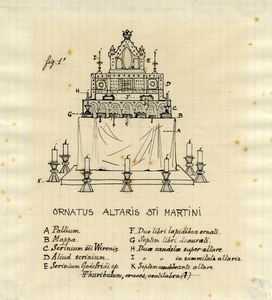 fig. 1ª
ORNATUS ALTARIS STI MARTINI
A Pallium.
B Mappa.
C Scrinium Sti Wironis.
D Aliud scrinium.
E Scrinium Godefridi ep.
F Duo libri lapidibus ornati.
G Septem libri deaurati.
H Duæ candelæ super altare.
I " " in summitate altaris.
K Septem candelæ ante altare
Thuribulum, cruces, ventilabra (?)